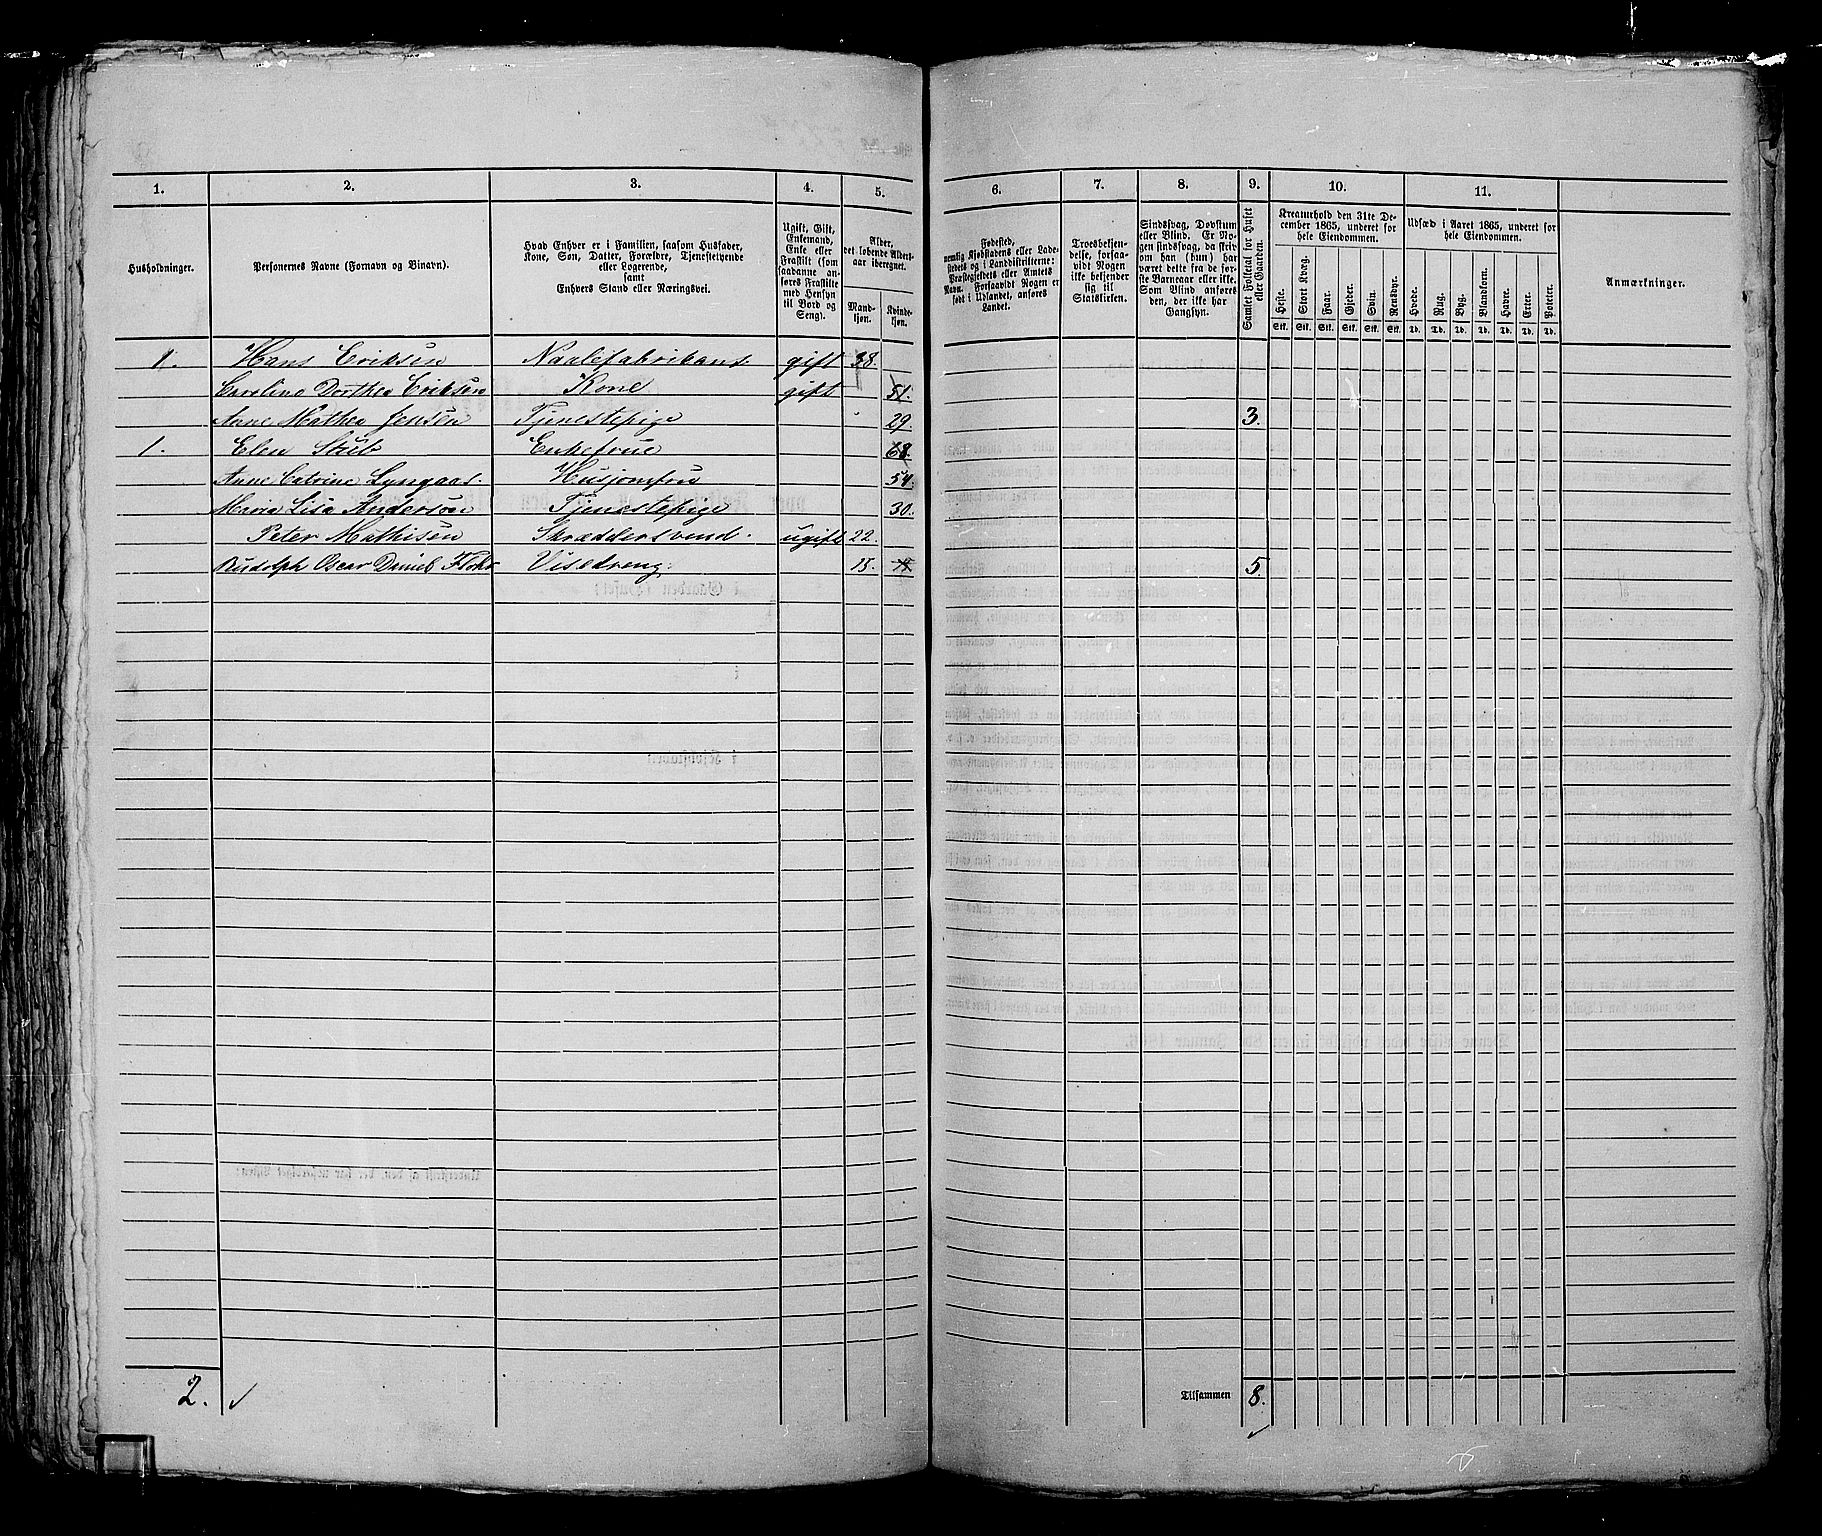 1. 2. 3. 4. 5. 6. 7. 8. 9. 10. 11.
Husholdninger.
Personernes Navne (Fornavn og Binavn).
Hvad Enhver er i Familien, saasom Husfader,
Kone, Søn, Datter, Forældre, Tjenestetyende
eller Logerende,
samt
Enhvers Stand eller Næringsvei.
Ugift, Gift,
Enkemand,
Enke eller
Fraskilt (som
saadanne an-
føres Fraskilte
med Hensyn
til Bord og
Seng).
Alder,
det løbende Alders-
aar iberegnet.
Mand-
kjøn.
Kvinde-
kjøn.
Fødested,
nemlig Kjøbstadens eller Lade-
stedets og i Landdistrikterne:
Præstegjeldets eller Amtets
Navn. Forsaavidt Nogen er
født i Udlandet, anføres
Landet.
Troesbekjen-
delse, forsaa-
vidt Nogen
ikke bekjender
sig til
Statskirken.
Sindssvag, Døvstum
eller Blind. Er No-
gen sindssvag, da skriv
om han (hun) har
været dette fra de for-
ste Barneaar eller ikke.
Som Blind anføres
den, der ikke har
Gangsyn.
Samlet Folketal for Huset
eller Gaarden.
Kreaturhold den 31te De-
cember 1865, underet for
hele Eiendommen.
Heste. Stort Kvæg. Faar. Gjeder. Svin. Rensdyr.
Stk. Stk. Stk. Stk. Stk. Stk.
Udsæd i Aaret 1865, underet for
hele Eiendommen.
Hvede. Rug. Byg. Blandkorn. Havre. Erter. Poteter.
Td. Td. Td. Td. Td. Td. Td.
Anmærkninger.
1. Hans Eriksen Naalefabrikant gift 38.
Caroline Dorthea Eriksen Kone gift 51.
Anne Mathea Jensen Tjenestepige 29. 3.
1. Elen Stub Enkefrue 68.
Anne Catrine Lyngaas. Husjomfru 54.
Maria Lisa Anderson Tjenestepige 30.
Peter Mathisen Skræddersvend. ugift 22.
Rudolph Oscar Daniel Visedreng. 15. 5.
2.
Tilsammen 8.